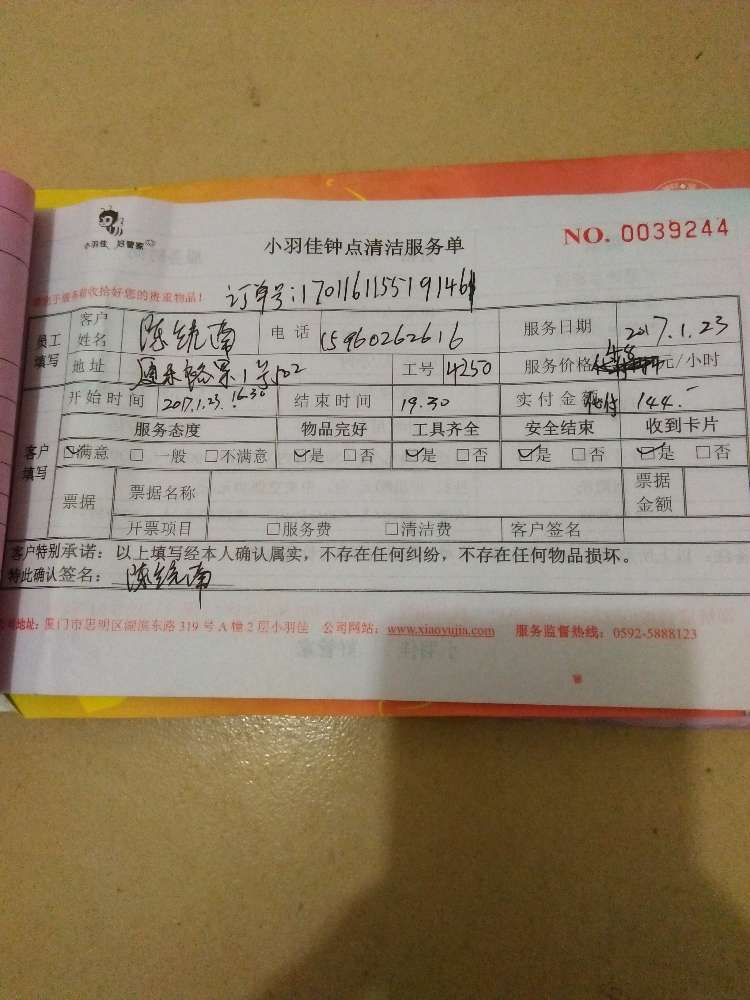 小羽佳 好管家
小羽佳钟点清洁服务单
NO. 0039244
收拾好您的贵重物品!
订单号:170116115519146
员工填写 客户姓名 陈 南 电话 15960262616 服务日期 2017.1.23
地址 1号502 工号 4250 服务价格 48 元/小时
开始时间 2017.1.23. 16.30 结束时间 19.30 实付金额 144.-
客户填写 服务态度 物品完好 工具齐全 安全结束 收到卡片
☑满意 □一般 □不满意 ☑是 □否 ☑是 □否 ☑是 □否 ☑是 □否
票据 票据名称 票据金额
开票项目 □服务费 □清洁费 客户签名
客户特别承诺:以上填写经本人确认属实,不存在任何纠纷,不存在任何物品损坏。
特此确认签名: 陈 南
地址:厦门市思明区湖滨东路 319 号 A 幢 2 层小羽佳 公司网站:www.xiaoyujia.com 服务监督热线:0592-5888123